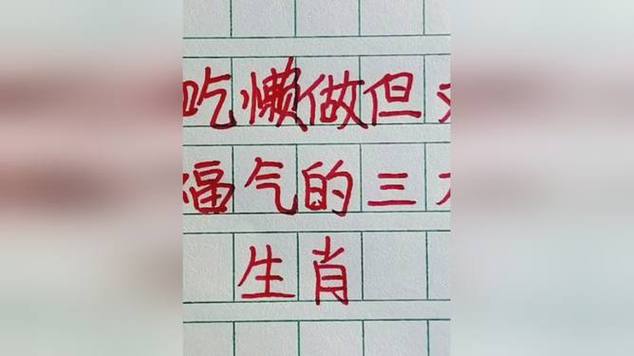 吃懒做但
福气的三
生肖